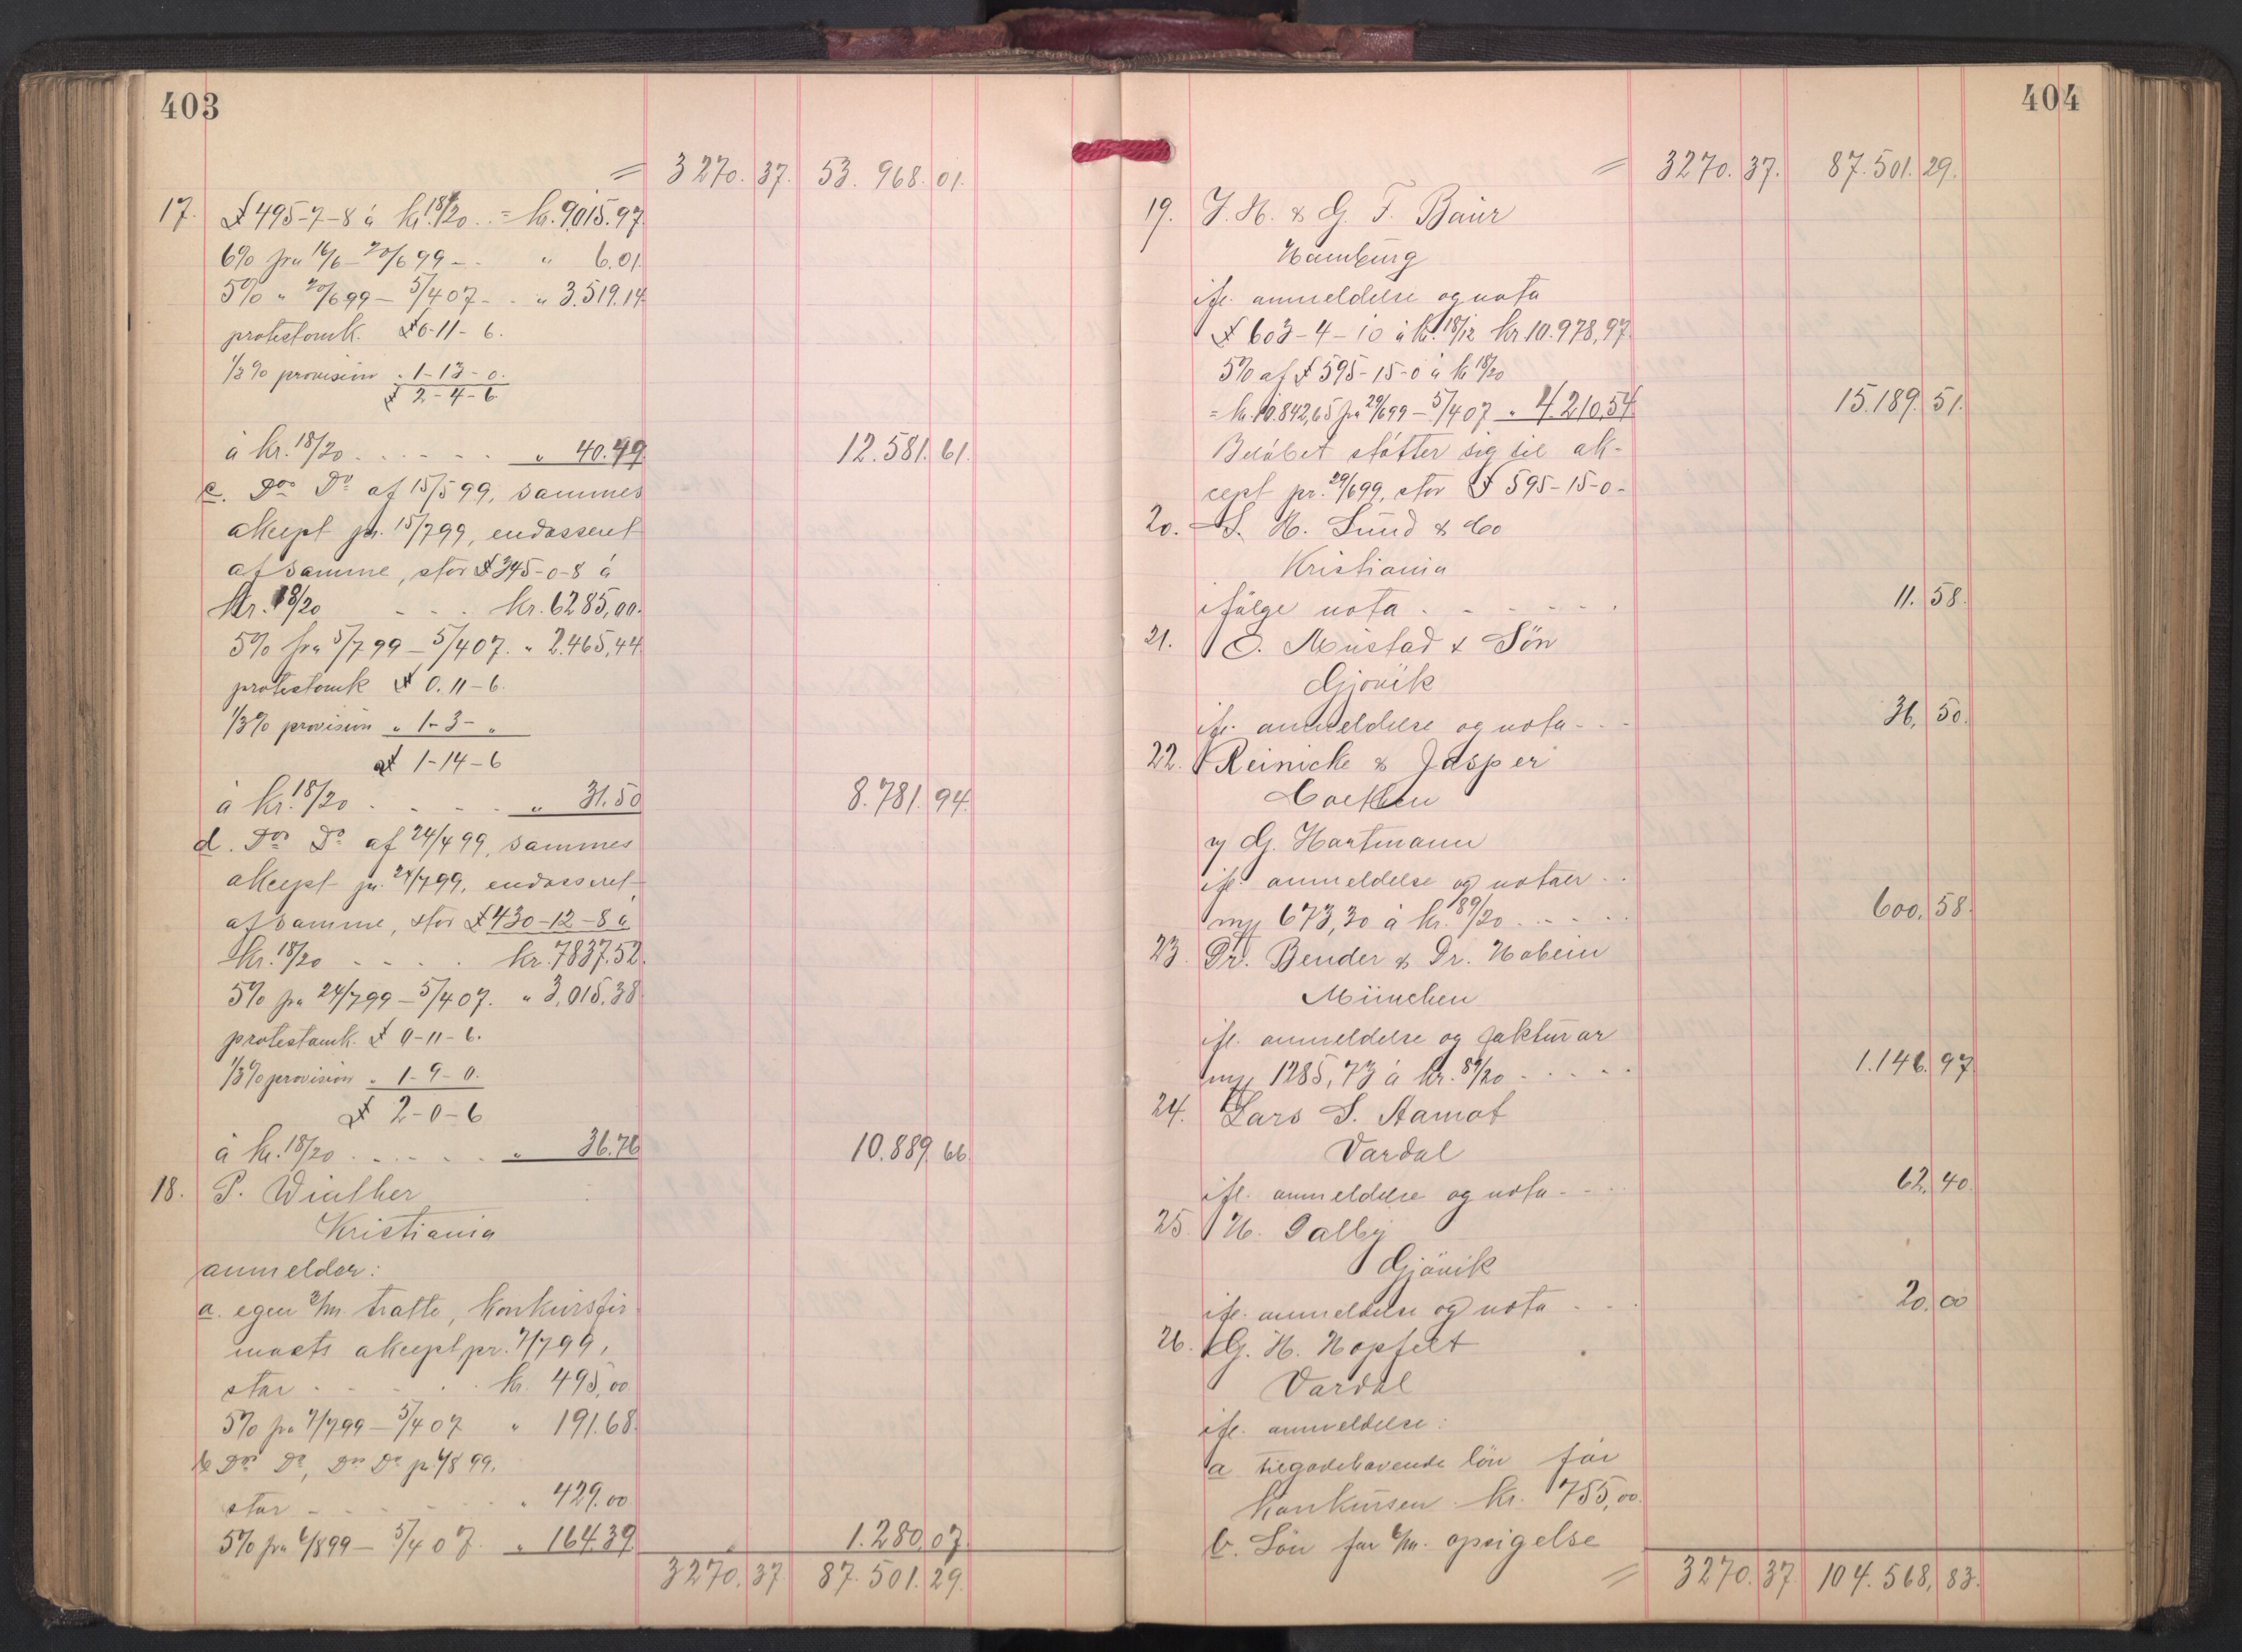 403
= 3270. 37. 53. 968. 01.
17. £ 495-7-8 á kr. 18/20 .. = kr. 9,015.97.
6% fra 16/6 - 20/6 99 - . " 6.01.
5% " 20/6 99 - 5/4 07 - . " 3.519.14
protestomk. £ 0-11-6.
1/3% provision " 1-13-0.
£ 2-4-6
á kr. 18/20 . . . . . " 40.49 12.581. 61.
c. Dos Do af 15/5 99, sammes
akcept pr. 15/7 99, endosseret
af samme, stor £ 345-0-8 á
kr. 18/20 - - . kr. 6285,00.
5% fra 5/7 99 - 5/4 07. " 2.465,44
protestomk £ 0.11-6.
1/3% provision " 1-3- "
£ 1-14-6
á kr. 18/20 . . . . " 31.50 8.781. 94.
d. Dos Do af 24/4 99, sammes
akcept pr. 24/7 99, endosseret
af samme, stor £ 430-12-8 á
kr. 18/20 - - . . kr. 7837.52.
5% fra 24/7 99 - 5/4 07. " 3,015,38
protestomk. £ 0-11-6.
1/3% provision " 1-9-0.
£ 2-0-6
á kr. 18/20 . . . . . " 36.76 10.889. 66.
18. P. Winther
Kristiania
anmelder:
a. egen 2/m. tratte, konkursfir
maets akcept pr. 7/7 99,
stor . . . . kr. 495,00
5% fra 7/7 99 - 5/4 07 " 191.68.
b Dos Do, Dos Do pr. 6/8 99.
stor - - - - . " 429.00.
5% fra 6/8 99 - 5/4 07. " 164.39 1.280, 07.
3270. 37. 87. 501. 29.
404
= 3270. 37. 87. 501. 29.
19. J. H. & G. F. Baur
Hamburg
ifl. anmeldelse og nota
£ 603-4-10 á kr. 18/12 kr. 10.978,97.
5% af £ 595-15-0 á kr 18/20
= kr. 10.842,65 fra 29/6 99 - 5/4 07 " 4.210,54 15.189. 51.
Beløbet støtter sig til ak-
cept pr. 29/6 99, stor £ 595-15-0-
20. S. H. Lund & Co
Kristiania
ifølge nota . - - - - - . 11. 58.
21. O. Mustad & Sön
Gjövik
ifl. anmeldelse og nota - . - 36, 50.
22. Reinicke & Jasper
Coethen
v/ G. Hartmann
ifl. anmeldelse og notaer . .
mp 673,30 á kr. 89/20 . . - - . . 600, 58.
23. Dr. Bender & Dr. Hobein
München
ifl. anmeldelse og fakturar
mp 1285,73 á kr. 89/20 - . . . - . 1.146. 97
24. Lars S. Aamot
Vardal
ifl. anmeldelse og nota - . - 62. 40.
25. H. Dalby
Gjövik
ifl. anmeldelse og nota . . . 20. 00
26. G. H. Hopfelt
Vardal
ifl. anmeldelse:
a tilgodehavende lön før
konkursen. kr. 755,00.
b. Lön for 6/m. opsigelse
= 3270. 37 104. 568, 83.